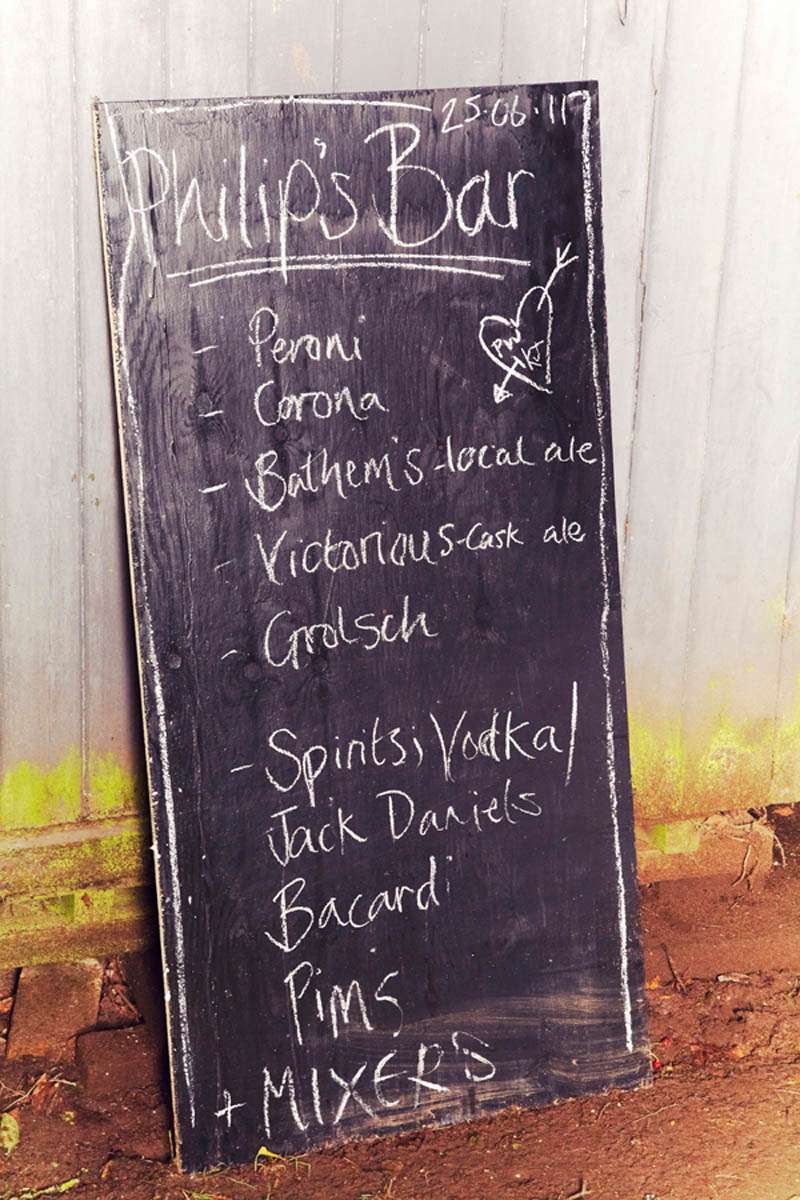 25.06.11
Philip's Bar
- Peroni
- Corona
- Bathem's - local ale
- Victorious - Cask ale
- Grolsch
- Spirits; Vodka/
Jack Daniels
Bacardi
Pims
+ MIXERS